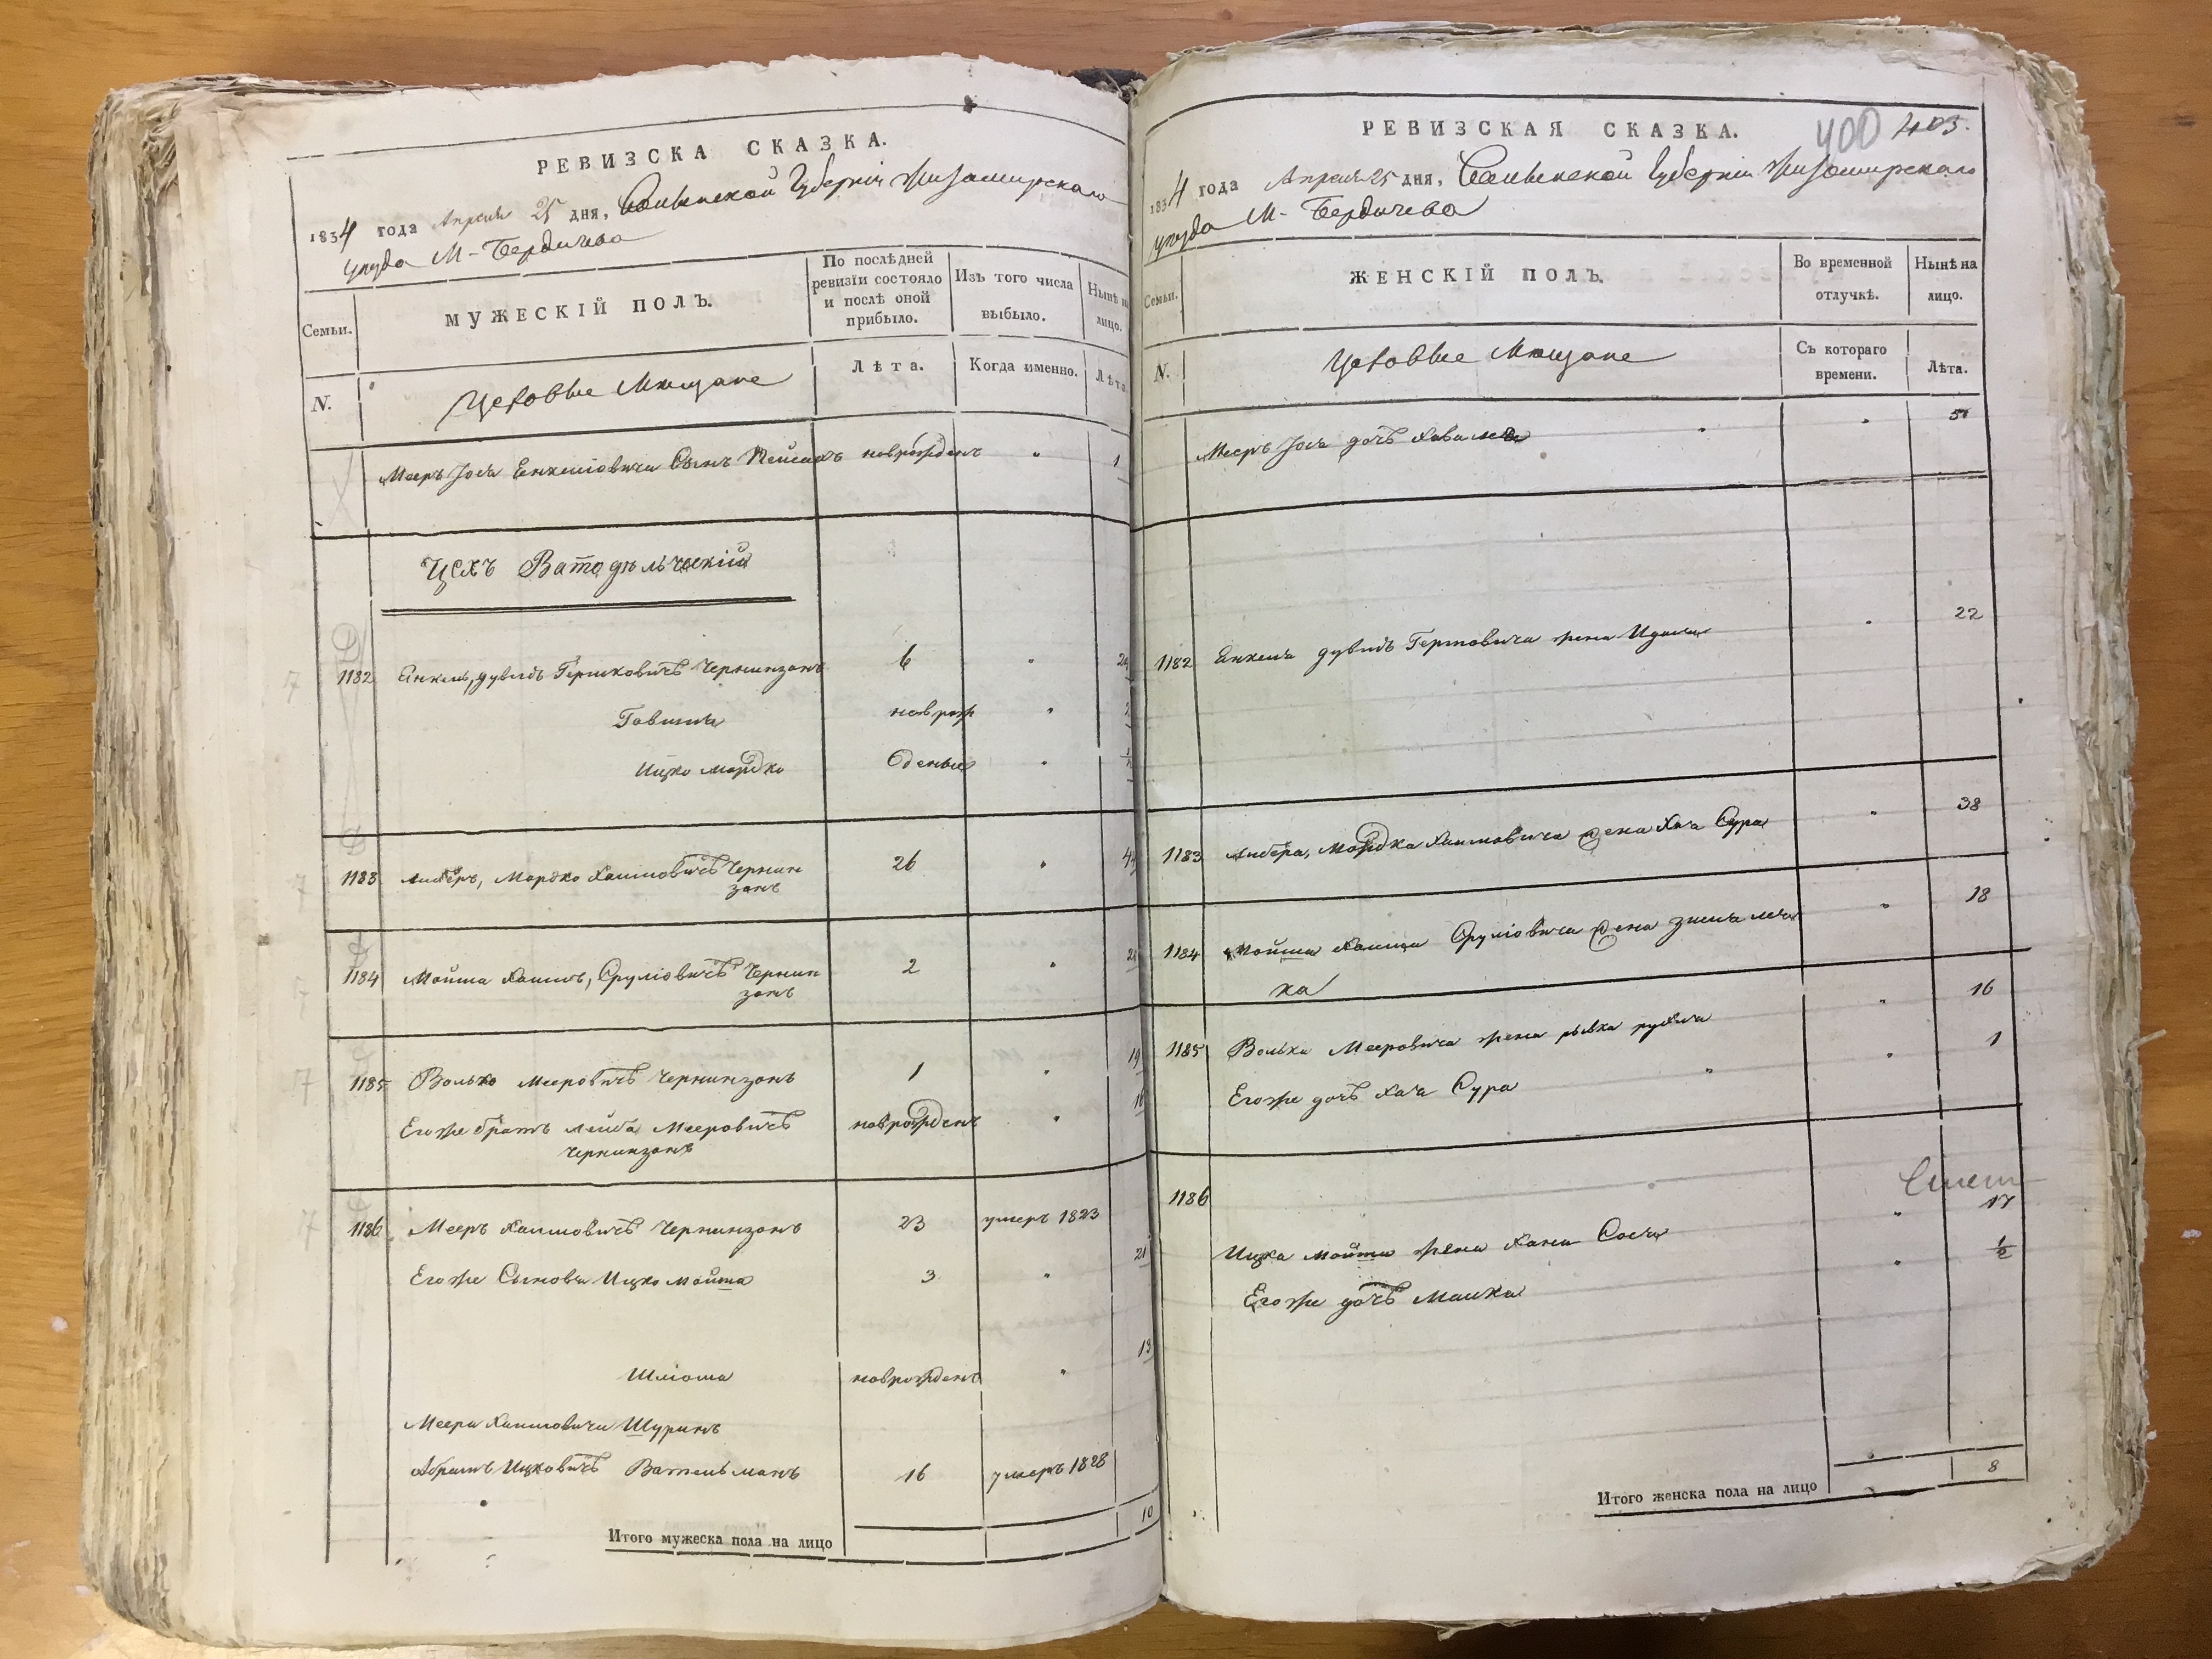 РЕВИЗСКА СКАЗКА.
1834 года Апреля 25 дня, Волынской Губернїи Житомирскаго
уезда М- Бердичева
Семьи.
МУЖЕСКІЙ ПОЛЪ.
По послѣдней ревизіи состояло и послѣ оной прибыло.
Изъ того числа выбыло.
Нынѣ на лицо.
N.
Цеховые Мещане
Лѣта.
Когда именно.
Лѣта
Мееръ Іося Енкелїовича Сынъ Пейсахъ новорожденъ " 1
Цехъ Ватодѣльческій
1182 Енкель, дувидъ Гершковичъ Чернинзонъ 6 "
Говшия новорож "
Ицко мордко Оденые "
1183 Либеръ, Мордко Хаимовичъ Чернин 26 " 44
зонъ
1184 Мойша Хаимъ, Срулїовичъ Чернин 2 "
зонъ
1185 Волько Мееровичъ Чернинзонъ 1 " 19
Егоже братъ лейба Мееровичъ новорожденъ " 16
Чернинзонъ
1186 Мееръ Хаимовичъ Чернинзонъ 23 умеръ 1823
Егоже Сыновья Ицко мойша 3 " 21
Шліома новорожденъ " 13
Меера Хаимовича Шуринъ
Абрамъ Ицковичъ Вательманъ 16 умеръ 1828
Итого мужеска пола на лицо 10
РЕВИЗСКАЯ СКАЗКА.
400 403.
1834 года Апреля 25 дня, Волынской Губернїи Житомирскаго
уезда М- Бердичева
Семьи.
ЖЕНСКІЙ ПОЛЪ.
Во временной отлучкѣ.
Нынѣ на лицо.
N.
Цеховые Мещане
Съ котораго времени.
Лѣта.
Мееръ Іося дочь "
1182 Енкеля дувидъ Гершовича жена " 22
1183 Либера, Мордка Хаимовича жена Хая Сура " 38
1184 Мойши Хаима Срулїовича жена " 18
ка
1185 Волька Мееровича жена рывка рухля " 16
Егоже дочь Хая Сура " 1
1186
Ицка мойши жена Хана Сося " 17
Егоже дочь Малка " 1/2
Итого женска пола на лицо 8